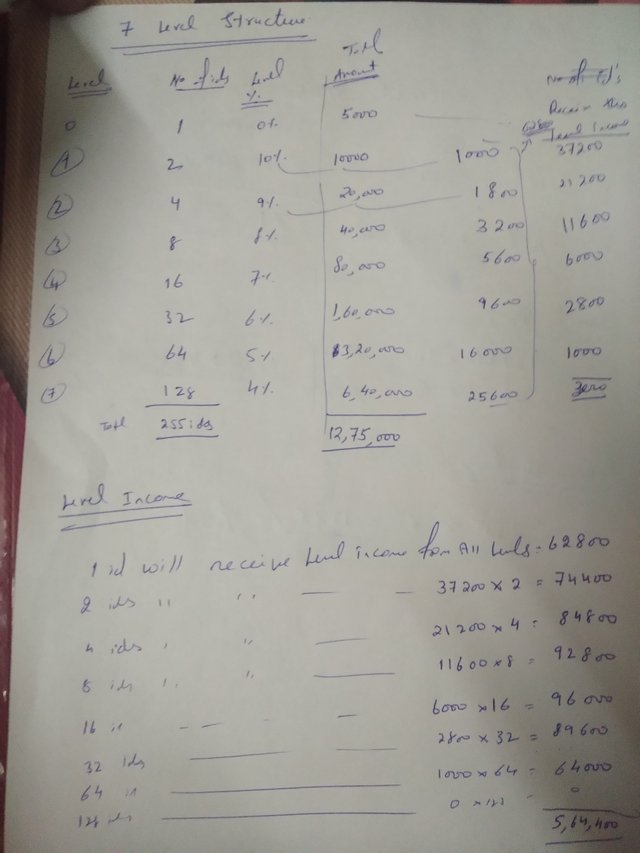 7 Level Structure
Level No of ids Level % Total Amount No of Id's Receive this Level Income
0 1 0% 5000 62800
1 2 10% 10000 1000 37200
2 4 9% 20,000 1800 21200
3 8 8% 40,000 3200 11600
4 16 7% 80,000 5600 6000
5 32 6% 1,60,000 9600 2800
6 64 5% 3,20,000 16000 1000
7 128 4% 6,40,000 25600 Zero
Total 255 ids 12,75,000
Level Income
1 id will receive Level Income from All Levels = 62800
2 ids " " — — 37200 x 2 = 74400
4 ids " " — 21200 x 4 = 84800
8 ids " " — 11600 x 8 = 92800
16 " - - — 6000 x 16 = 96000
32 ids — — 2800 x 32 = 89600
64 " — 1000 x 64 = 64000
128 ids — 0 x 128 = 0
5,64,400